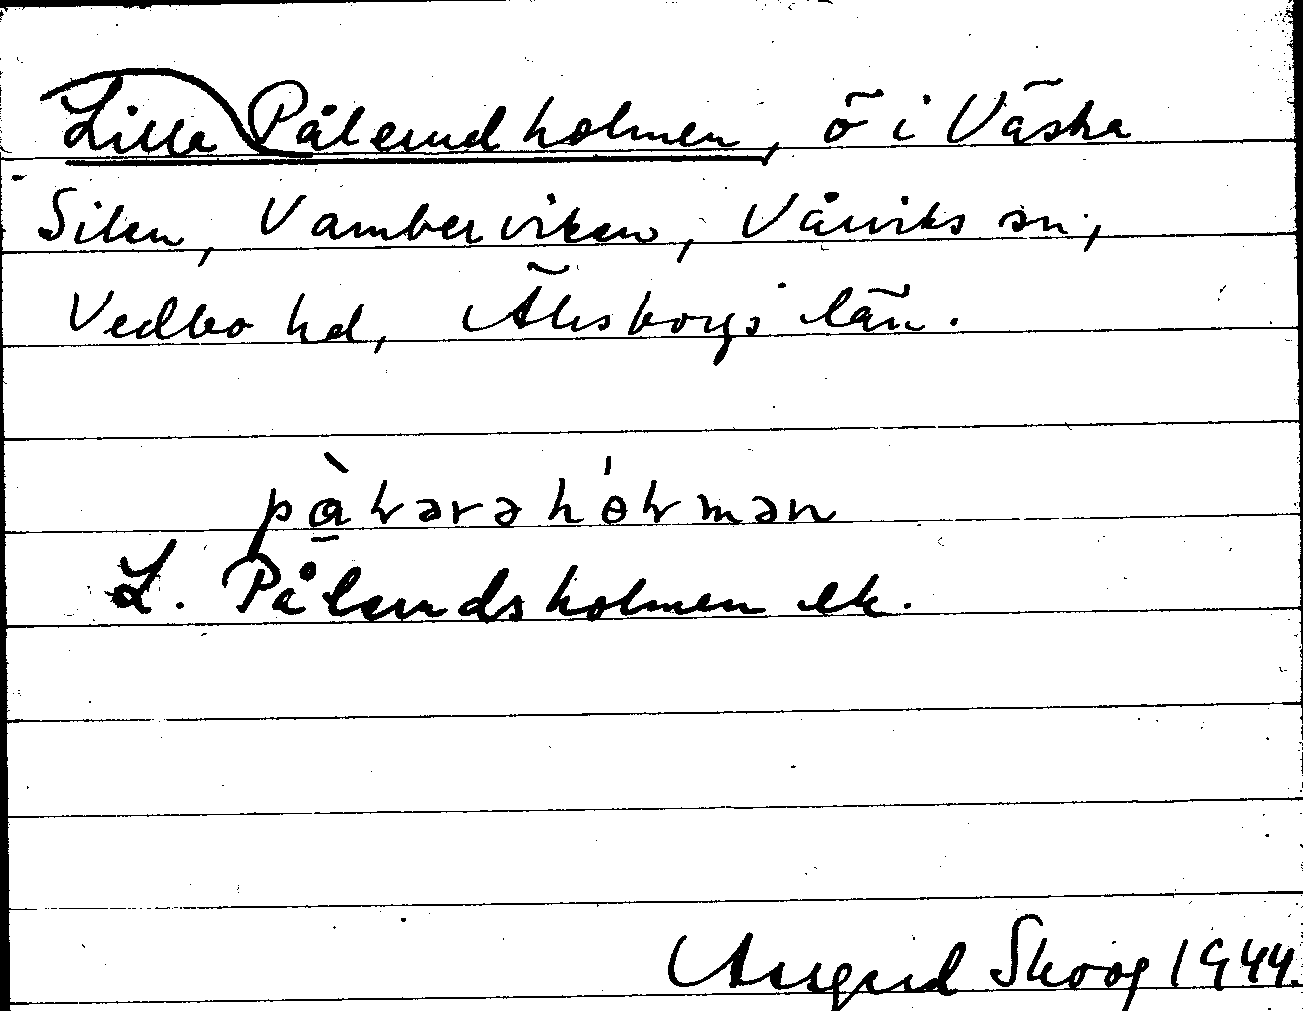 Lilla Pålerudholmen, ö i Västra
Silen, Vamberviken, Vårviks sn,
Vedbo hd, Älvsborgs län.
pàlərəhólmən
L. Pålerudsholmen ek.
Asgerd Skoog 1944.